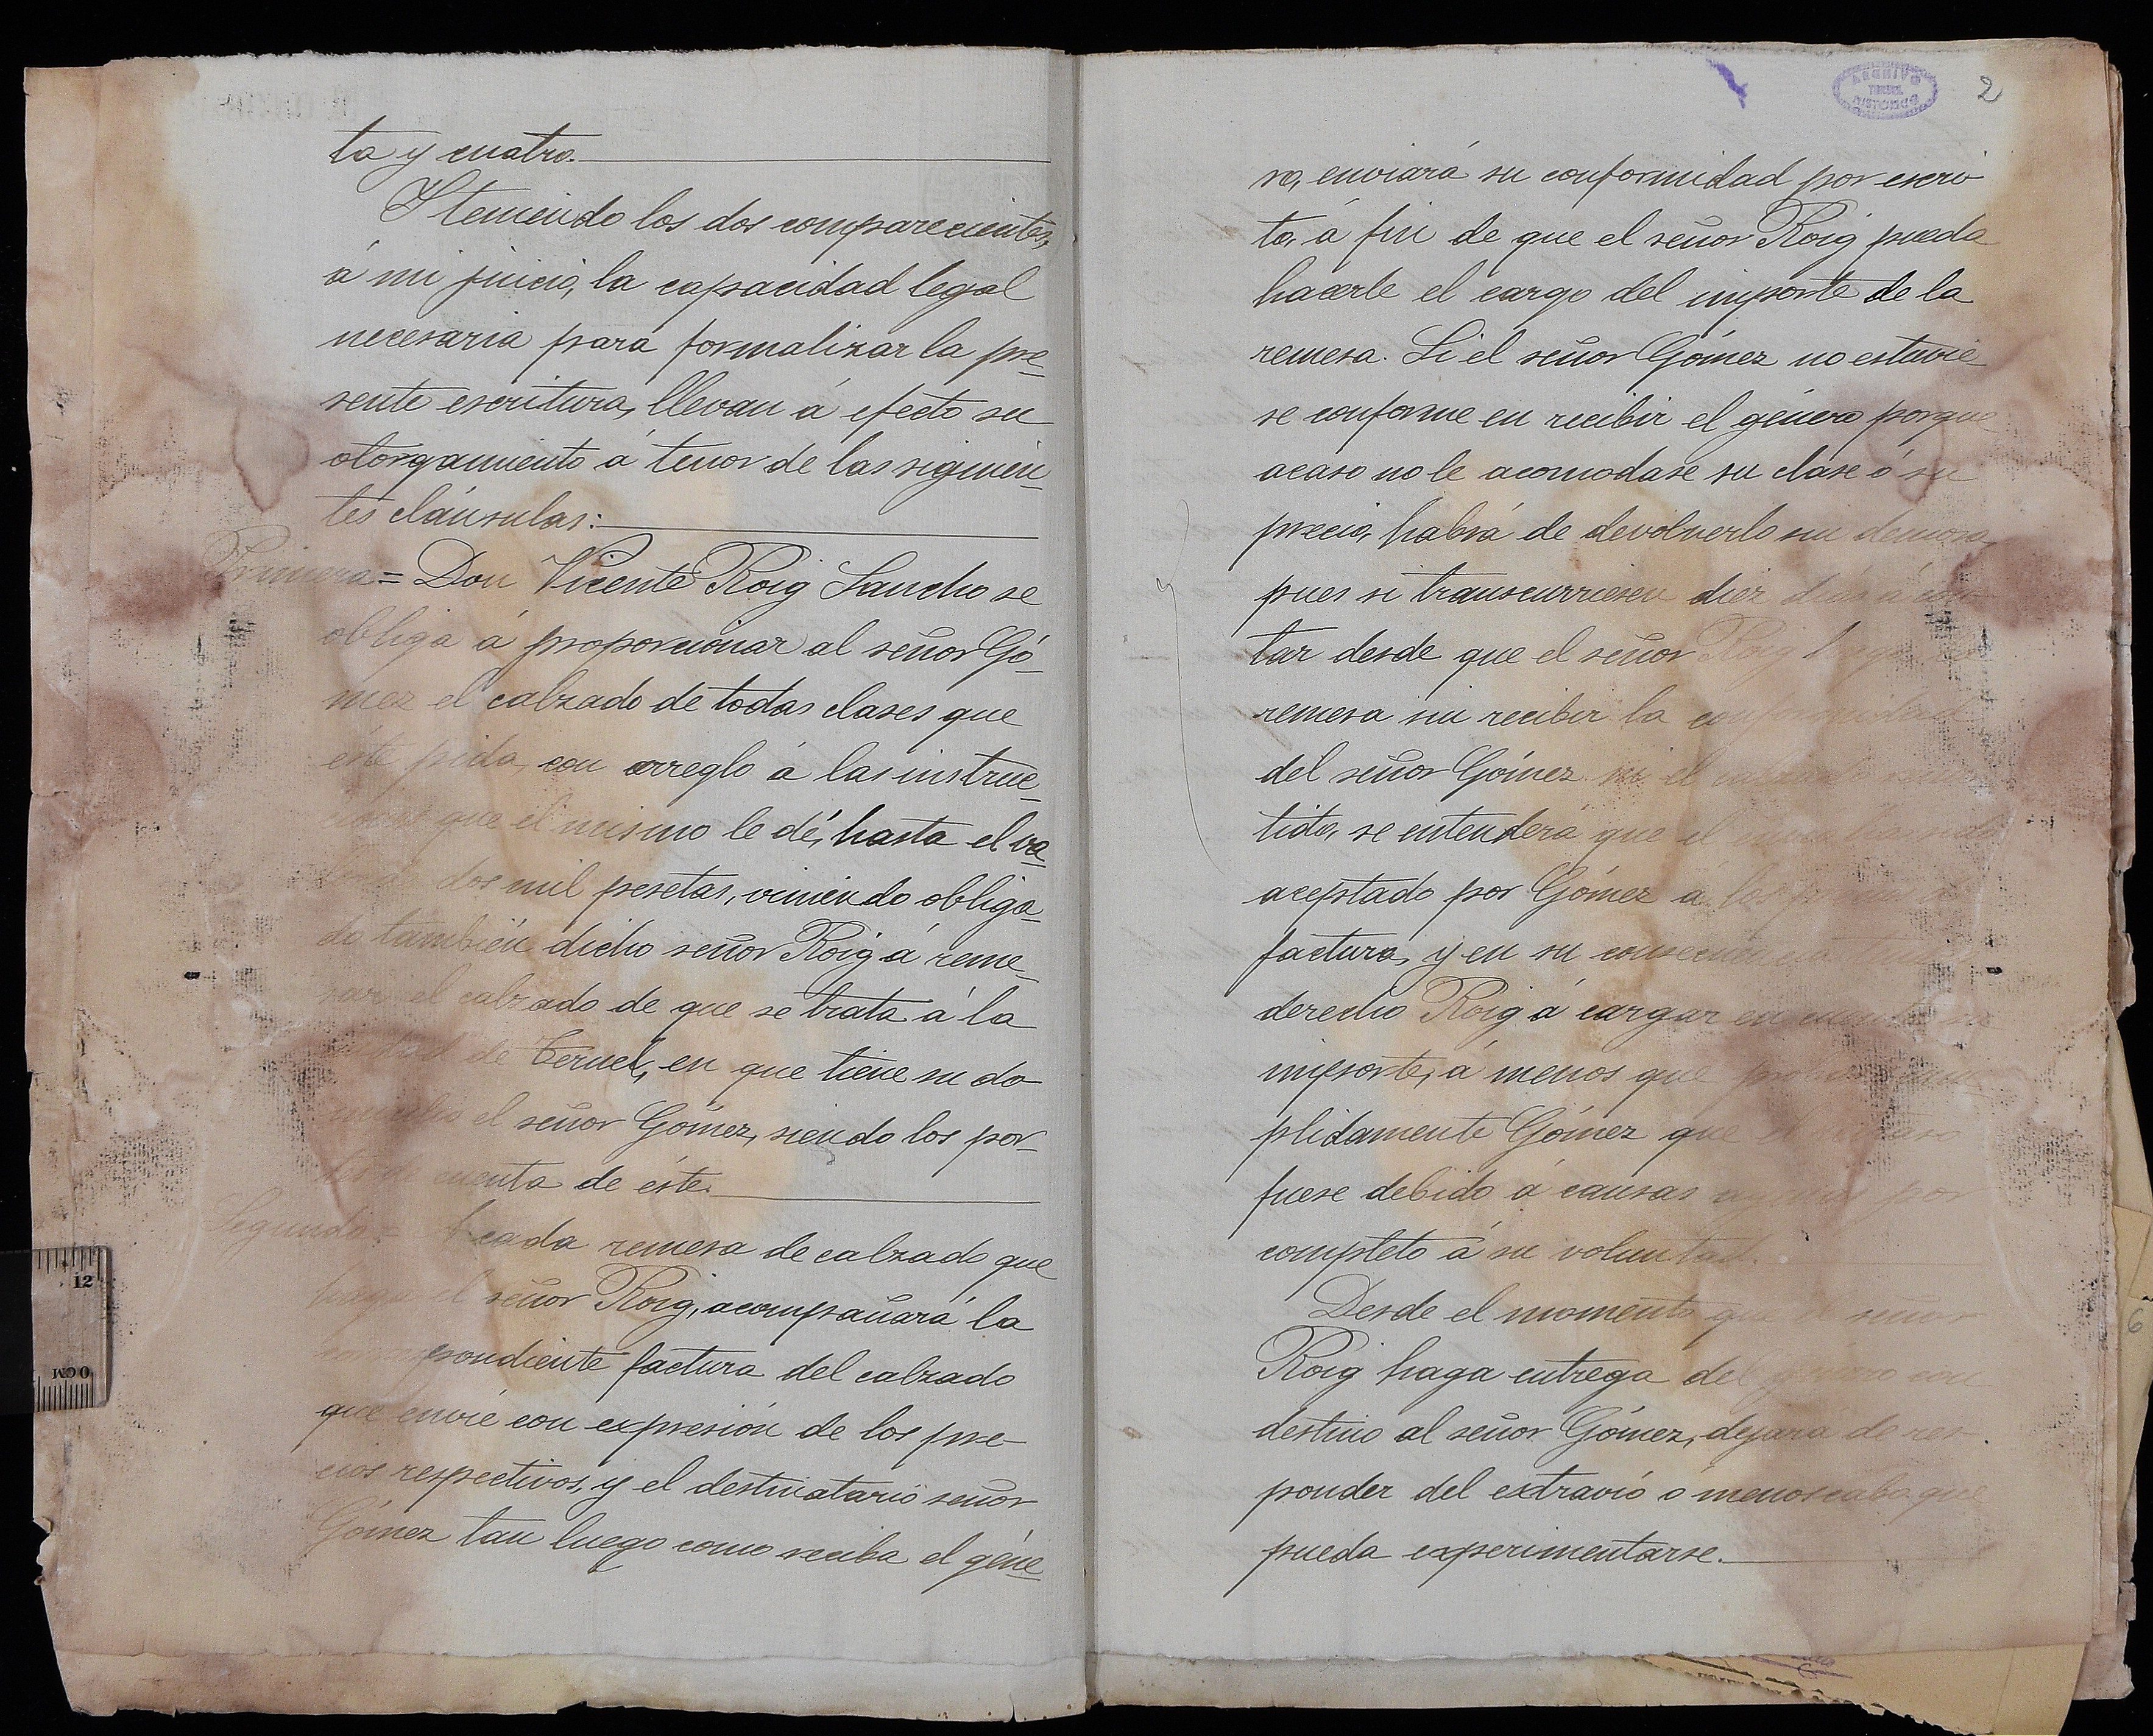 ta y cuatro.
Y teniendo los dos comparecientes,
á mi juicio, la capacidad legal
necesaria para formalizar la pre-
sente escritura, llevan á efecto su
otorgamiento á tenor de las siguien-
tes cláusulas:
Primera = Don Vicente Roig Sancho se
obliga á proporcionar al señor Gó-
mez el calzado de todas clases que
éste pida, con arreglo á las instruc-
ciones que el mismo le dé, hasta el va-
lor de dos mil pesetas, viniendo obliga-
do también dicho señor Roig á reme-
sar el calzado de que se trata á la
ciudad de Teruel, en que tiene su do-
micilio el señor Gómez, siendo los por-
tes de cuenta de éste.
Segunda = A cada remesa de calzado que
haga el señor Roig, acompañará la
correspondiente factura del calzado
que envie con expresión de los pre-
cios respectivos, y el destinatario señor
Gómez tan luego como reciba el géne-
2
ARCHIVO
HISTORICO
TERUEL
ro, enviará su conformidad por escri-
to, á fin de que el señor Roig pueda
hacerle el cargo del importe de la
remesa. Si el señor Gómez no estuvie-
se conforme en recibir el género porque
acaso no le acomodase su clase ó su
precio, habrá de devolverlo sin demora,
pues si transcurriesen diez dias á con-
tar desde que el señor Roig haga la
remesa sin recibir la conformidad
del señor Gómez ni el calzado
tido, se entenderá que el
aceptado por Gómez a los precios de
factura, y en su consecuencia
derecho Roig á cargar en cuenta su
importe, á menos que probase cum-
plidamente Gómez que el retraso
fuese debido á causas ajenas por
completo á su voluntad.
Desde el momento que el señor
Roig haga entrega del género con
destino al señor Gómez, dejará de res-
ponder del extravió ó menoscabo que
pueda experimentarse.
6
12
0CM